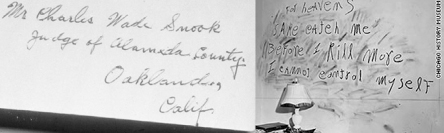 Mr Charles Wade Snook
Judge of Alameda County.
Oakland
Calif.
For heavens
SAKe cAtch me
BeFore I Kill More
I cannot control myselF
CHICAGO HISTORY MUSEUM